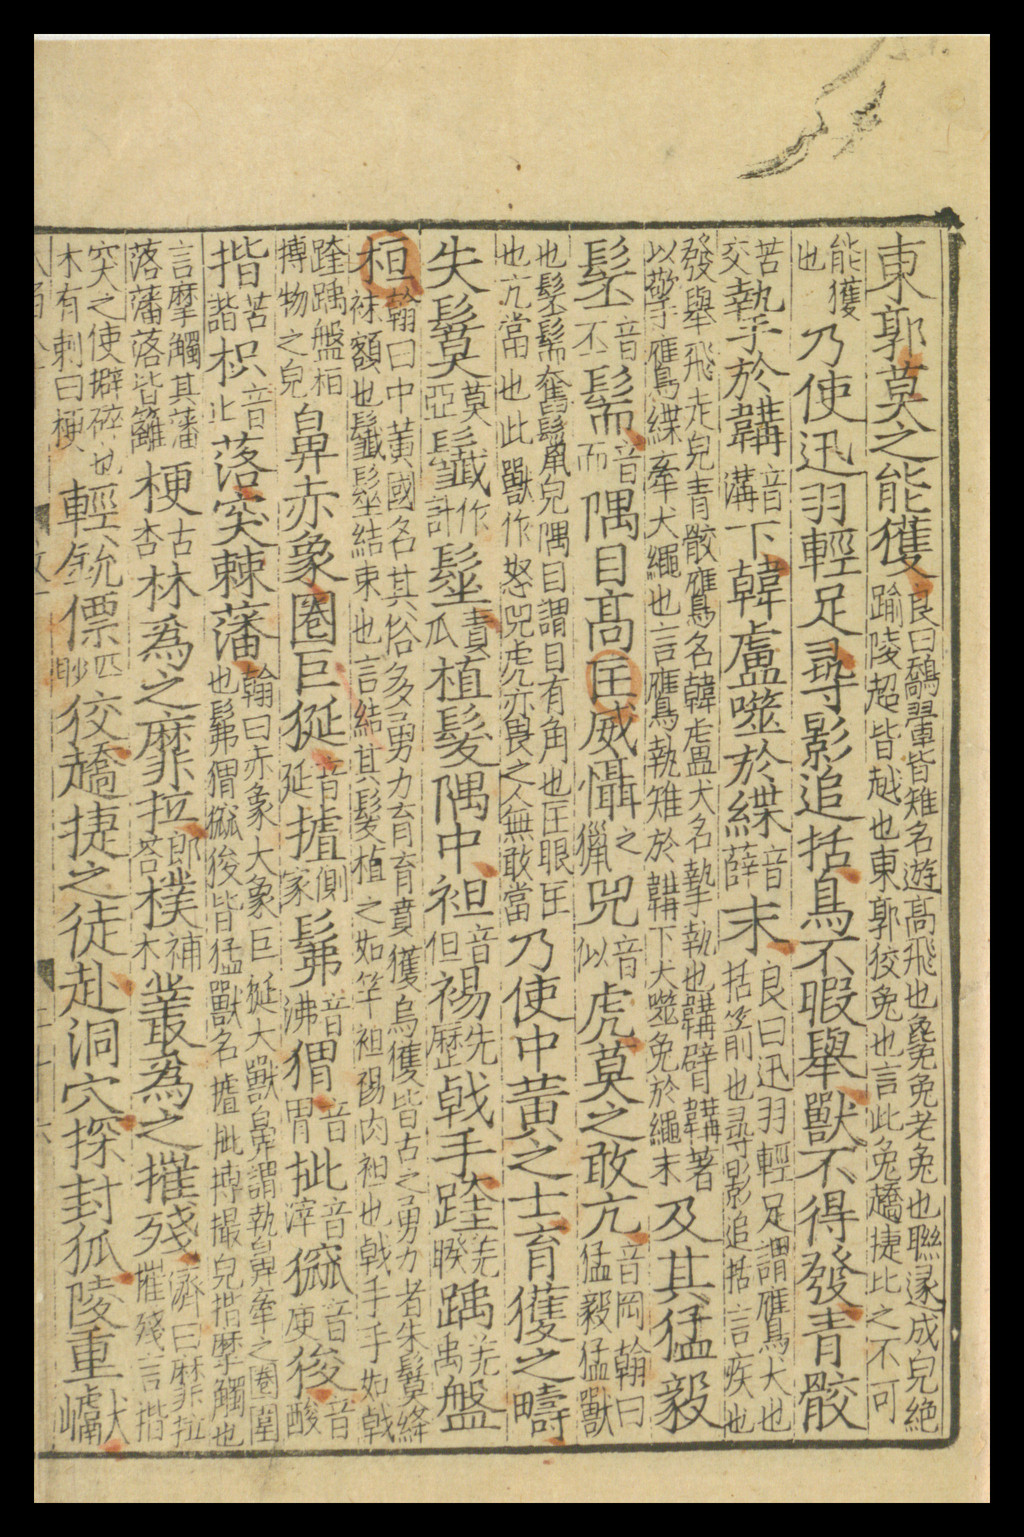 東郭莫之能獲良曰鷮翬皆雉名遊髙飛也毚兔老兔也聯遂成皃絶踰陵超皆越也東郭狡兔也言此兔趫捷比之不可
能獲也乃使迅羽輕足尋影追括鳥不暇舉獸不得發青骹
苦交摯於韝音溝下韓盧噬於緤音薛末良曰迅羽輕足謂鷹犬也括箭也尋影追括言疾也
發舉飛走皃青骹鷹名韓盧犬名摯執也韝臂韝著以擎鷹緤牽犬繩也言鷹執雉於韝下犬噬兔於繩末及其猛毅
髬音丕髵音而隅目髙匡威懾之獵兕音似虎莫之敢亢音岡翰曰猛毅猛獸
也髬髵奮鬣皃隅目謂目有角也匡眼匡也亢當也此獸作怒兕虎亦畏之人無敢當乃使中黄之士育獲之疇
失鬕莫亞鬣作計髽責瓜植髮隅中袒音但裼先歷戟手跬羌睽踽羌禹盤
桓翰曰中黄國名其俗多勇力育育賁獲烏獲皆古之勇力者朱鬕絳袜額也鬣髽結束也言結其髮植之如竿袒裼肉袒也戟手手如戟
跬踽盤桓搏物之皃鼻赤象圈巨狿音延摣側家髴音沸猬音胃批音滓窳音庾狻音酸
揩苦諧枳音止落突棘藩翰曰赤象大象巨狿大獸鼻謂執鼻牽之圈圍也髴猬窳狻皆猛獸名摣批搏撮皃揩摩觸也
言摩觸其藩落藩落皆籬梗古杏林爲之靡拉郎荅樸補木叢爲之摧殘濟曰靡拉摧殘言揩
突之使擗碎也木有刺曰梗輕銳僄匹眇狡趫捷之徒赴洞穴探封狐陵重巘